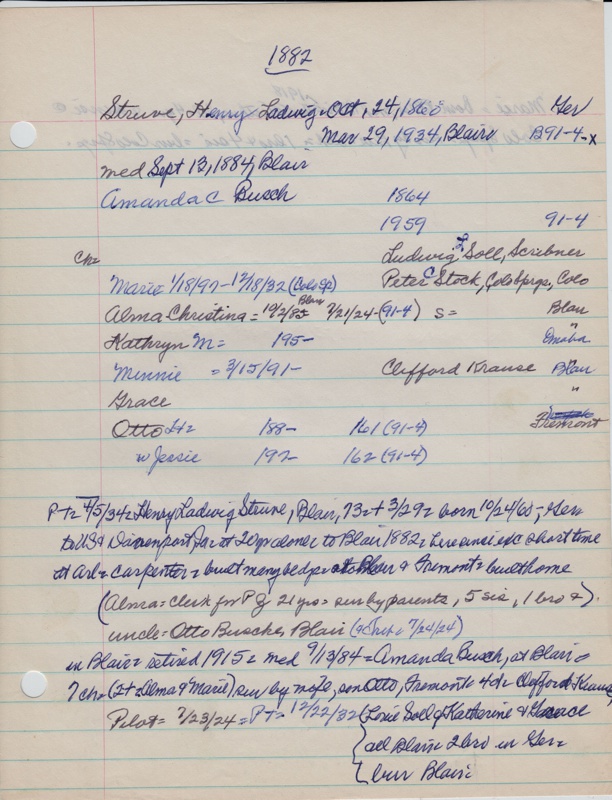 1882
Struve, Henry Ludwig = Oct, 24, 1860 = Ger
Mar 29, 1934, Blair B91-4-x
med Sept 13, 1884, Blair
Amanda C Busch 1864
1959 91-4
Ch= Ludwig L Soll, Scribner
Marie = 1/18/97-12/18/32 (Colo Sp) Peter C Stock, Colo Sprgs, Colo
Alma Christina = 10/2/85 = Blair 7/21/24-(91-4) s= Blair
Kathryn M= 195- Omaha
Minnie = 3/15/91- Clifford Krause Blair
Grace "
Otto H= 188- 161 (91-4) Fremont
w Jessie 192- 162 (91-4)
P-T= 4/5/34 = Henry Ludwig Struve, Blair, 73 = + 3/29 = born 10/24/60 = Ger
to US & Davenport, Ia at 20 yrs alone = to Blair 1882 = here ansi exc short time
at Arl = carpenter = built many bedgs at Blair & Fremont = built home
(Alma = clerk for P G 21 yrs = sur by parents, 5 sis, 1 bro &).
uncle = Otto Busch, Blair (7/24/24)
in Blair = retired 1915 = med 9/13/84 = Amanda Busch, at Blair =
7 ch = (2 + = Alma & Marie) sur by wofe, son Otto, Fremont = 4 d = Clifford Krause,
Pilot = 7/23/24 = P-T = 12/22/32 (Louie Soll & Katherine & Grace
all Blair = 2 bro in Ger =
bur Blair =